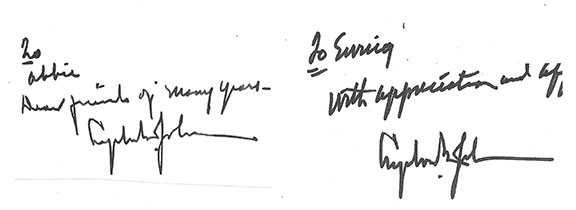 To
Abbie
Dear friends of many years-
Lyndon B. Johnson
To
With appreciation and af
Lyndon B. Johnson